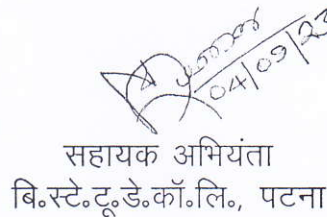 04/09/23
सहायक अभियंता
बि॰स्टे॰टू॰डे॰कॉ॰लि॰, पटना